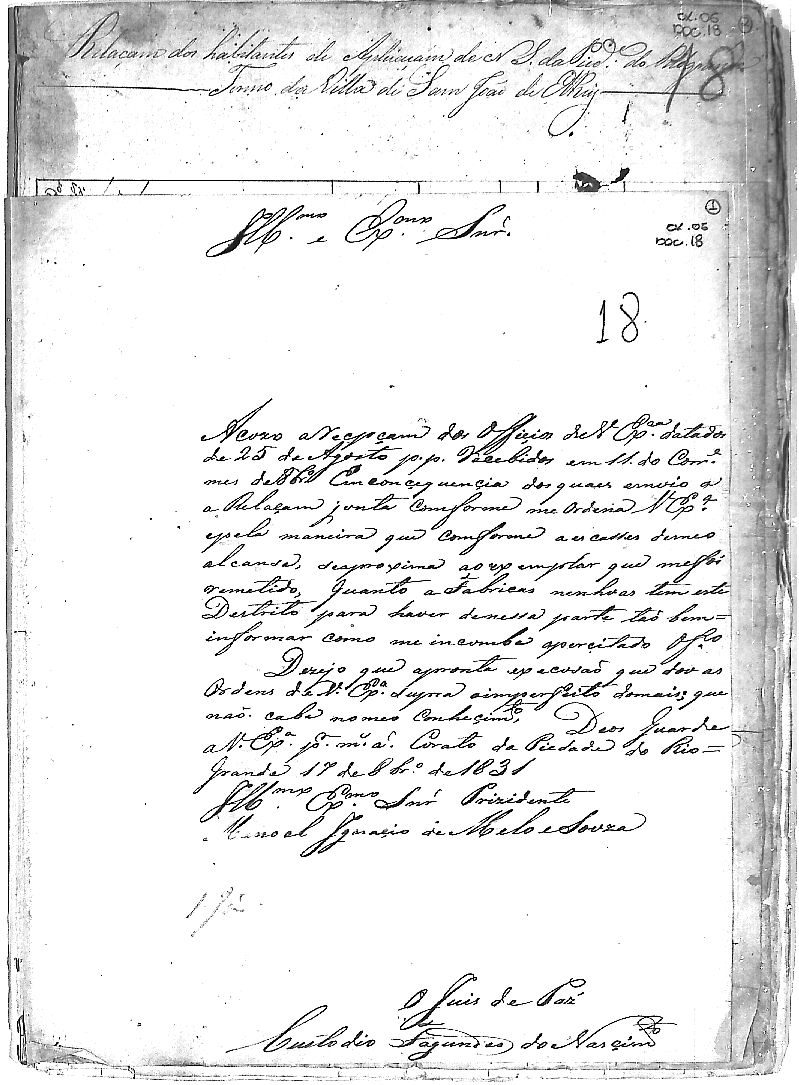 cx.06
DOC.18
Relaçam dos habitantes de Aplicaçam de N S. da Pied.e do
18
Termo da Villa de Sam João de ElRey
1
cx.06
DOC.18
Ill.mo e Ex.mo Snr.
18
Acuzo a recepçam dos Officios de V. Ex.cia datados
de 25 de Agosto p.p. recebidos em 11 do Corr.e
mes de 8br.o Em conceguencia dos quaes envio a
a Relaçam junta comforme me Ordena V Ex.a
epela maneira que comforme a escasses demeo
alcanse, seaproxima ao exemplar que mefoi
remetido, quanto a Fabricas nenhuas tem este
Destrito para haver denessa parte taõ bem=
informar como me incumbe o Of.cio
Dezejo que apronta execusaõ que dou as
Ordens de V. Ex.a supra oimperfeito domais; que
naõ cabe nomeo conhecim.to Deos Guarde
a V. Ex.a p.r m.s a.s Corato da Piedade do Rio=
Grande 17 de 8br.o de 1831
Ill.mo Ex.mo Snr Prizidente
Manoel Ignacio de Melo e Souza
O Juis de Paz
Custodio Fagundes do Nascim.to